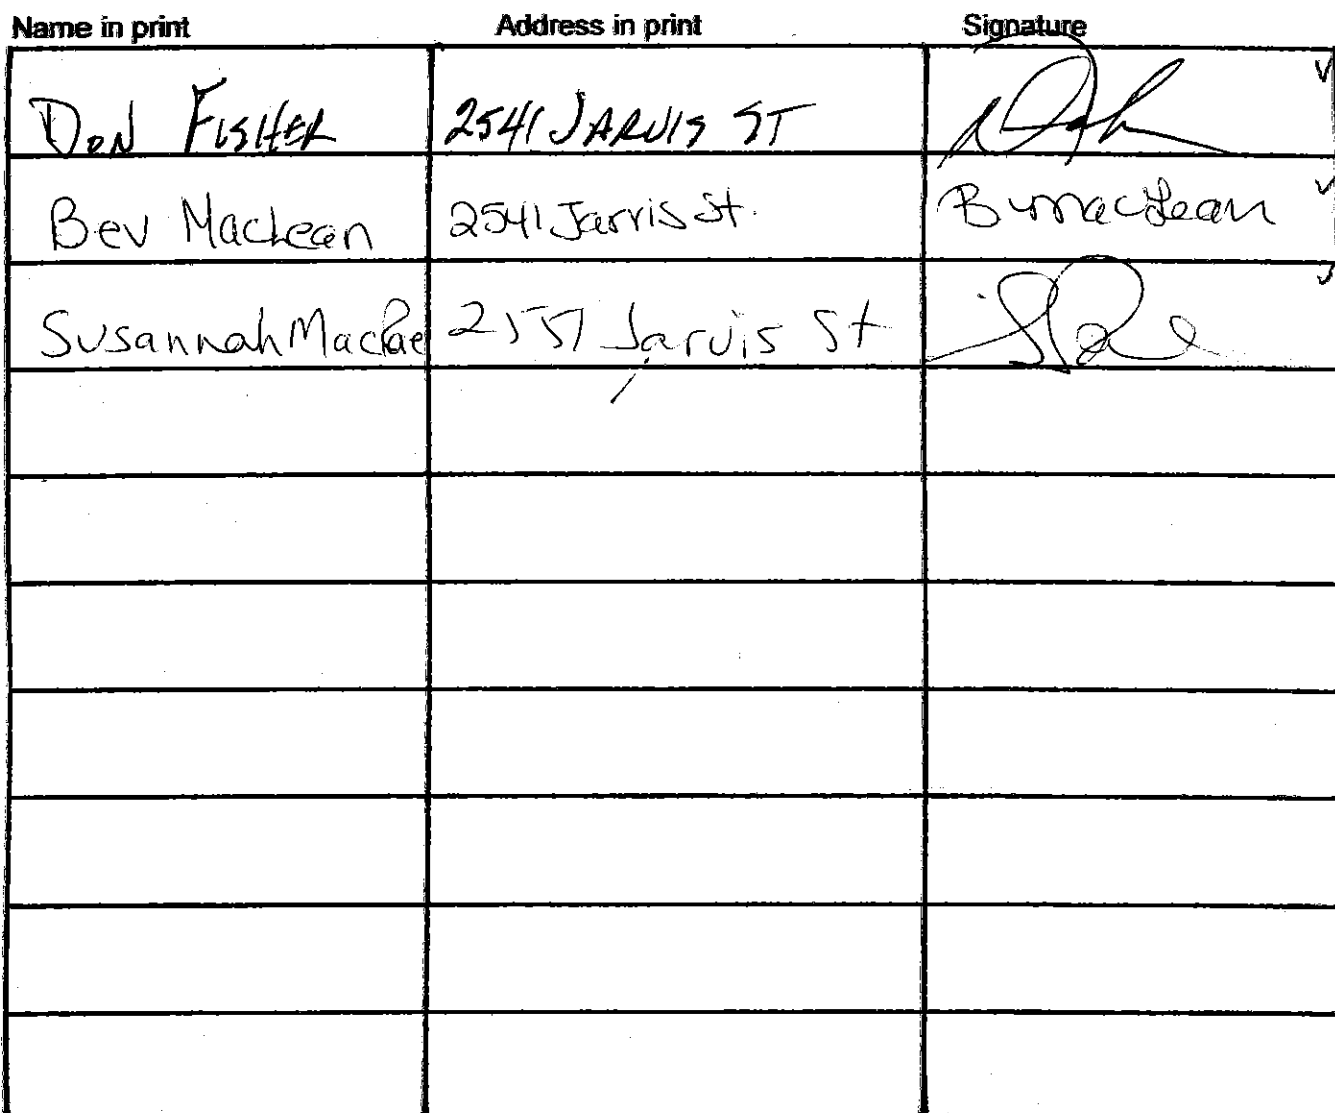 Name in print Address in print Signature
DON FISHER 2541 JARVIS ST
Bev MacLean 2541 Jarvis St. B MacLean
Susannah MacRae Jarvis St